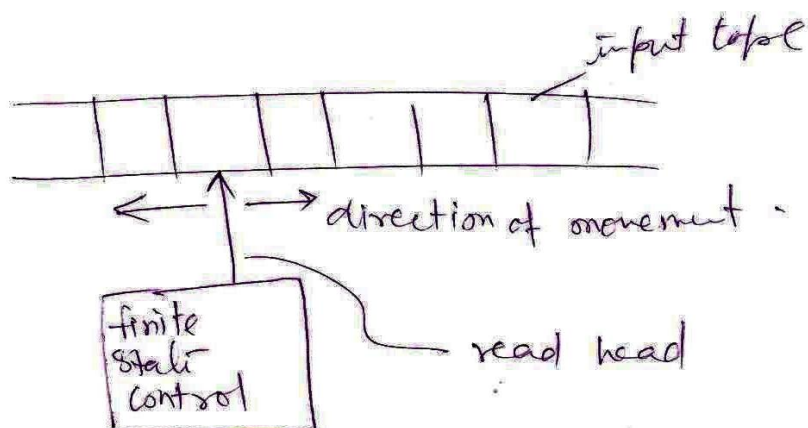 input tape
direction of movement .
finite
state
control
read head